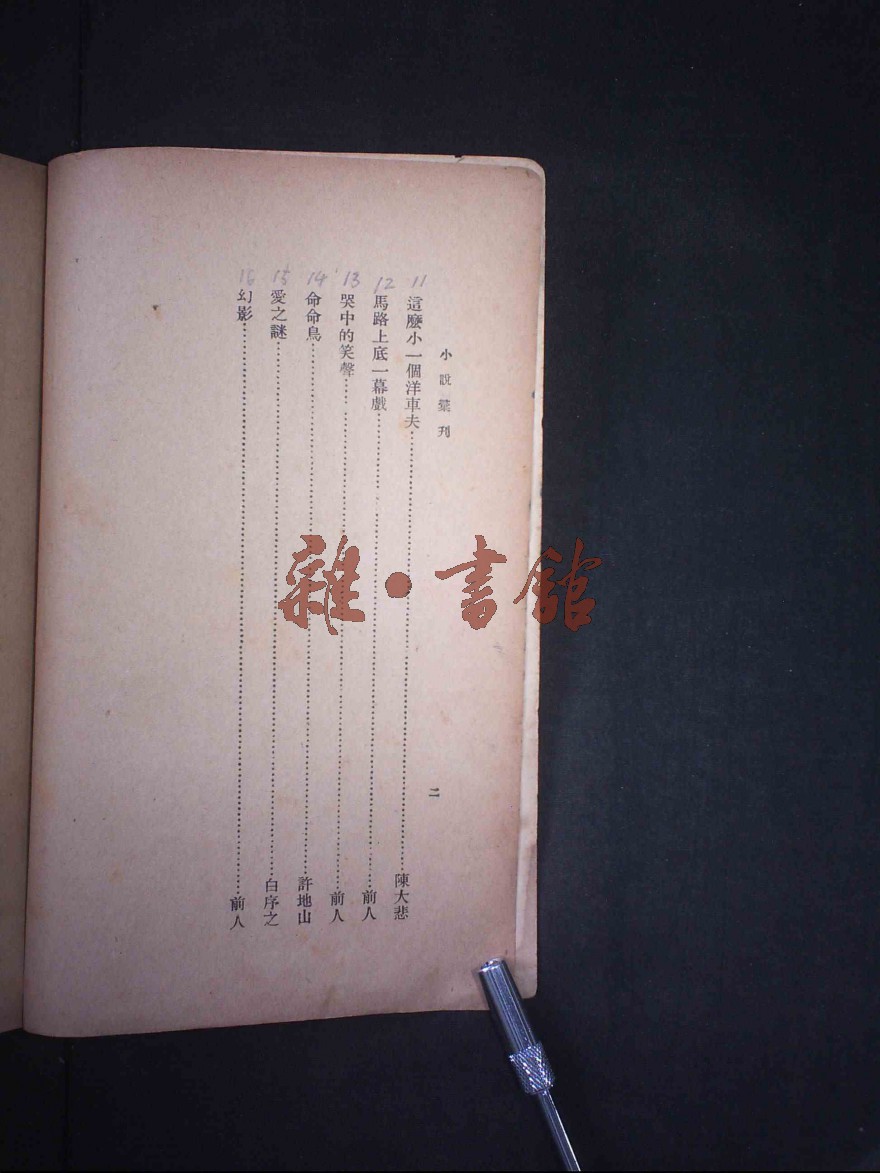 小說彙刊
二
11 這麼小一個洋車夫……陳大悲
12 馬路上底一幕戲……前人
13 哭中的笑聲……前人
14 命命鳥……許地山
15 愛之謎……白序之
16 幻影……前人
雜·書館